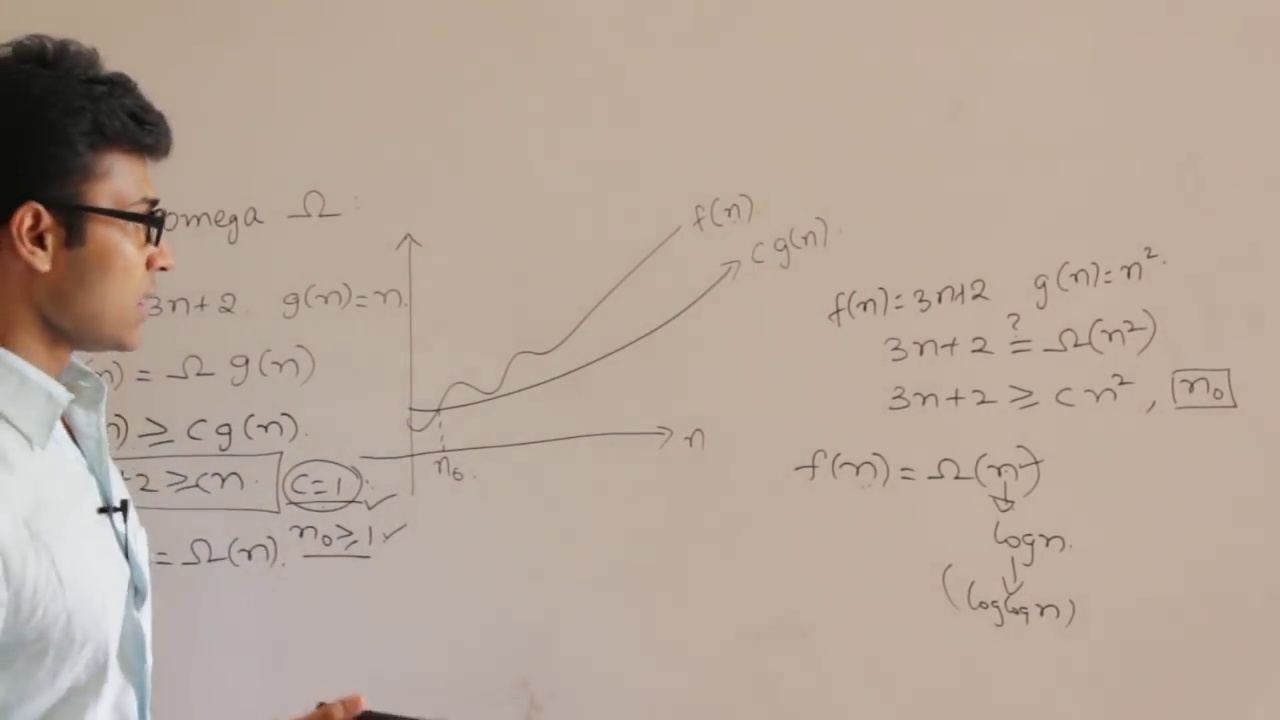 omega Ω :
3n+2 g(n)=n.
n) = Ω g(n)
n) ≥ c g(n).
+2 ≥ cn. c=1
= Ω(n). n₀ ≥ 1 ✓
f(n)
c g(n)
n
n₀
f(n) = 3n+2 g(n) = n².
3n+2 ≟ Ω(n²)
3n+2 ≥ c n², n₀
f(n) = Ω(n)
logn.
(loglogn)